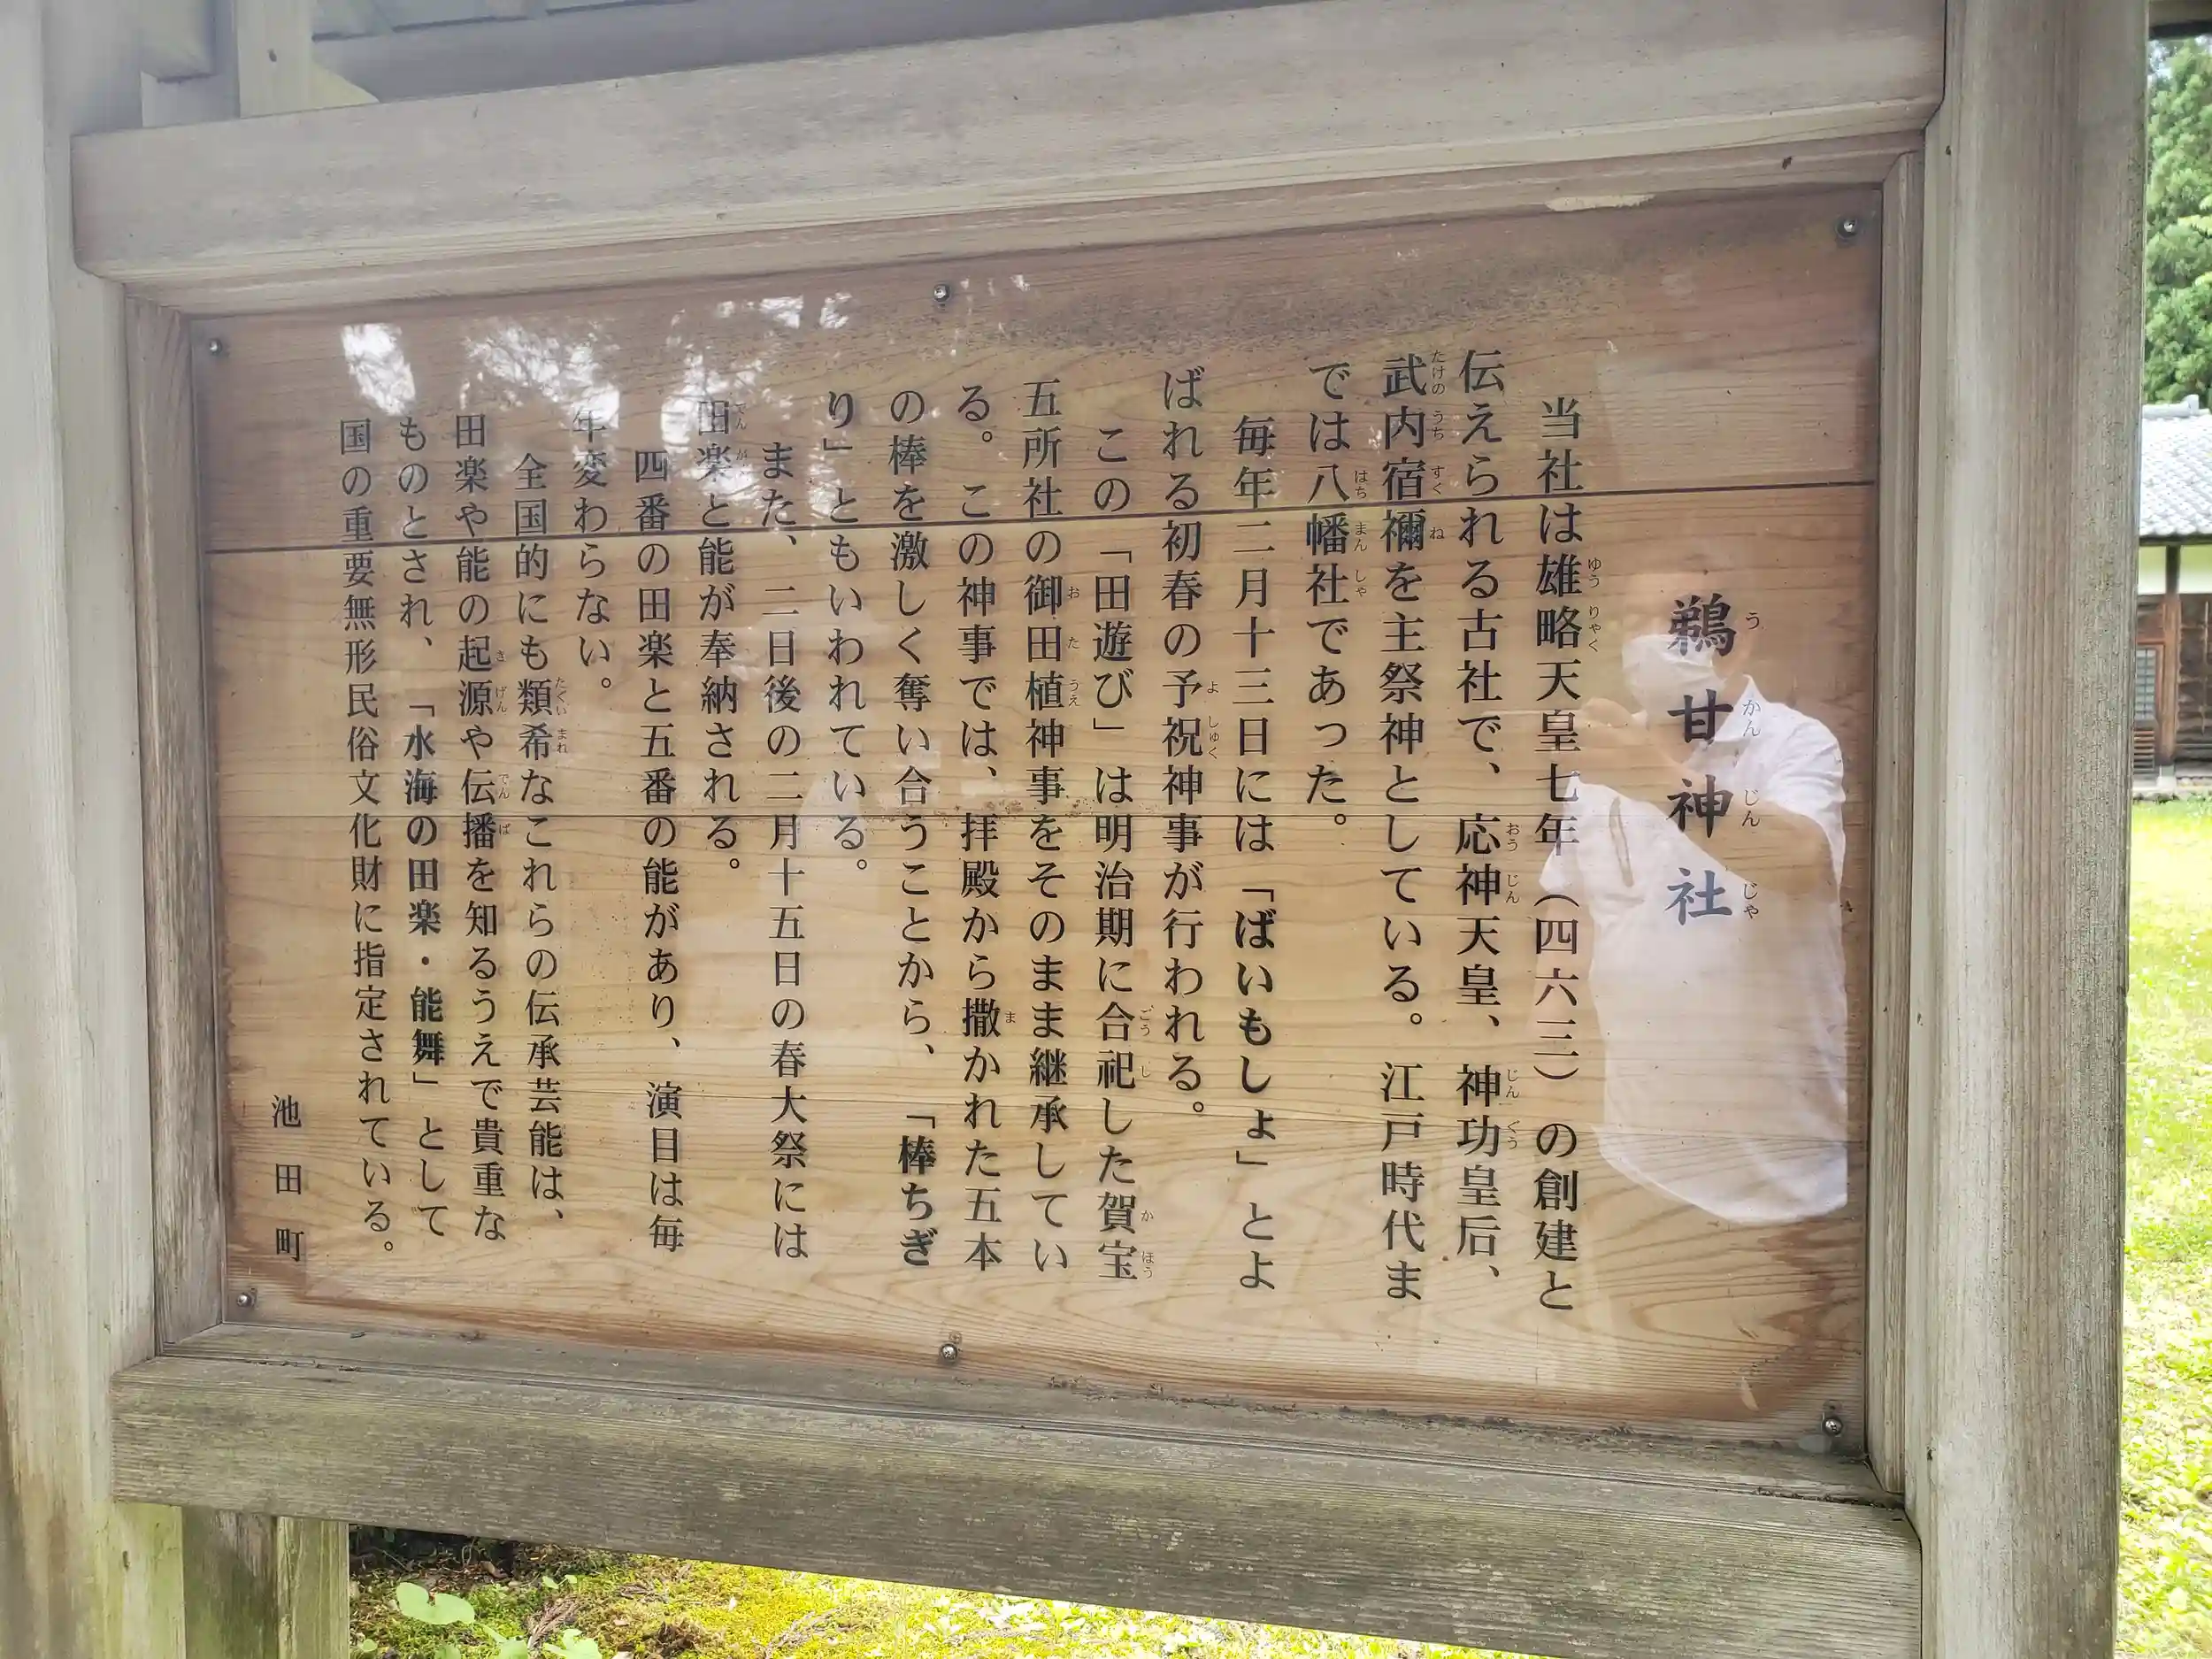 鵜甘神社
当社は雄略天皇七年（四六三）の創建と
伝えられる古社で、応神天皇、神功皇后、
武内宿禰を主祭神としている。江戸時代ま
では八幡社であった。
毎年二月十三日には「ばいもしょ」とよ
ばれる初春の予祝神事が行われる。
この「田遊び」は明治期に合祀した賀宝
五所社の御田植神事をそのまま継承してい
る。この神事では、拝殿から撒かれた五本
の棒を激しく奪い合うことから、「棒ちぎ
り」ともいわれている。
また、二日後の二月十五日の春大祭には
田楽と能が奉納される。
四番の田楽と五番の能があり、演目は毎
年変わらない。
全国的にも類希なこれらの伝承芸能は、
田楽や能の起源や伝播を知るうえで貴重な
ものとされ、「水海の田楽・能舞」として
国の重要無形民俗文化財に指定されている。
池田町